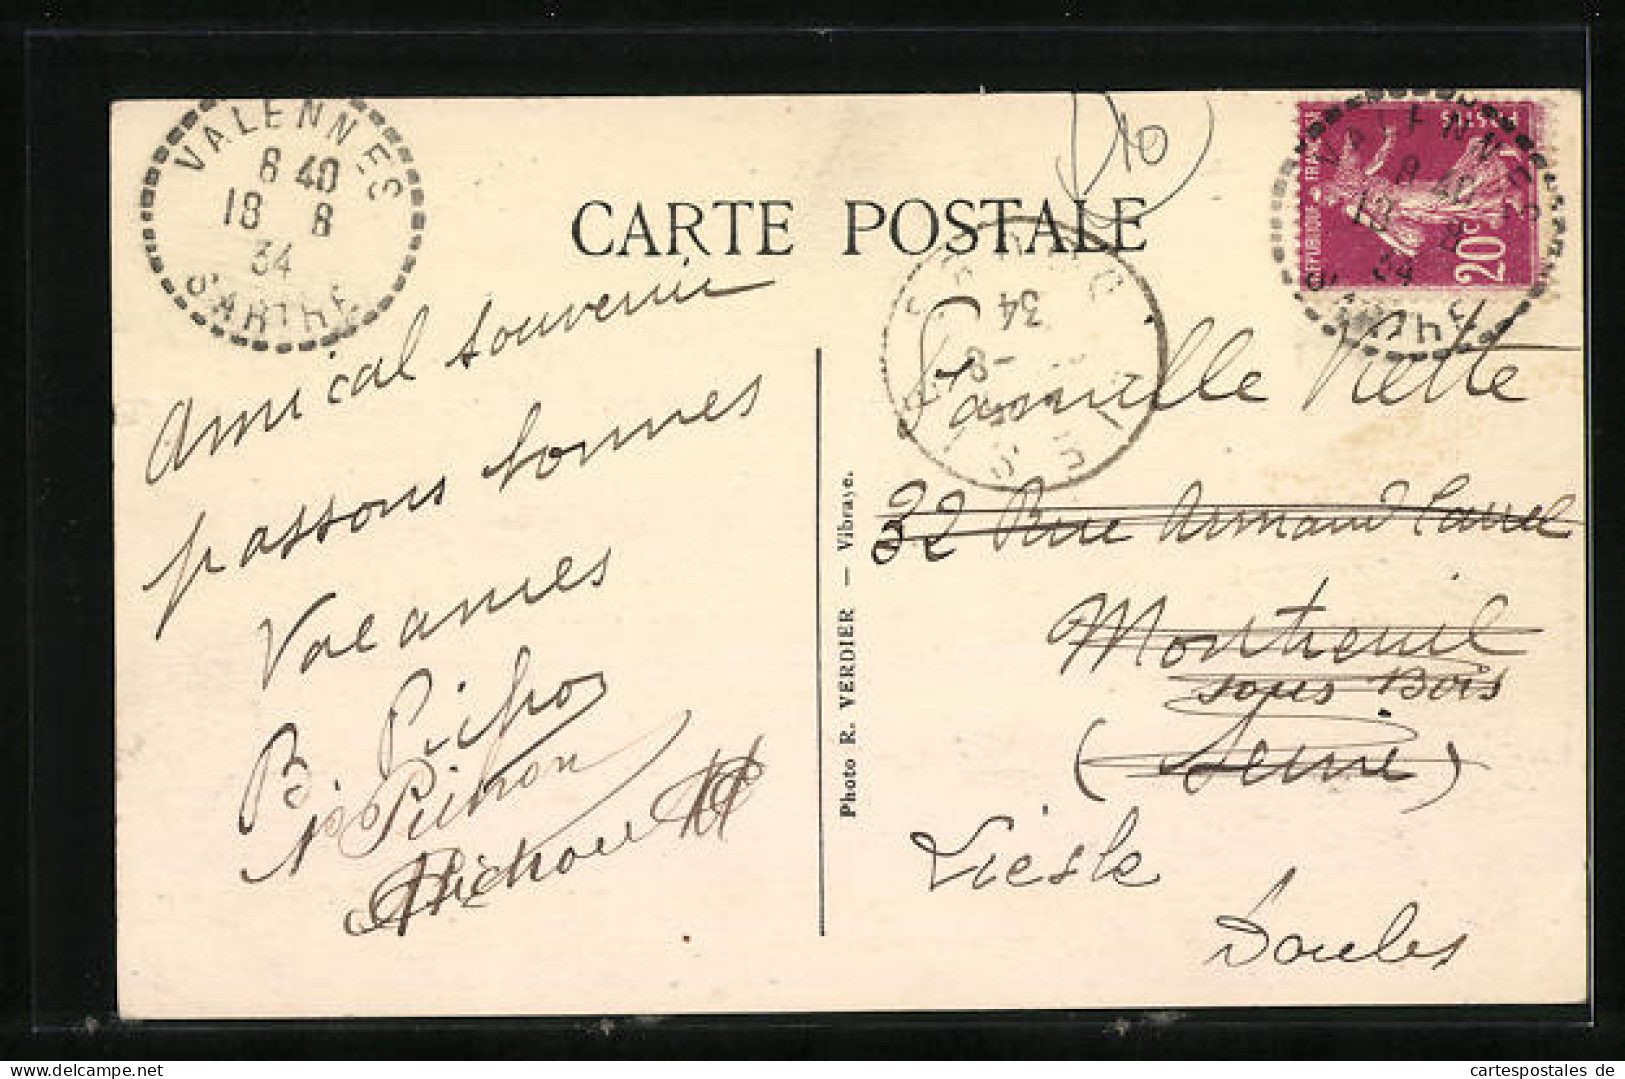 VALENNES
8 40
18 8
34
SARTHE
10
CARTE POSTALE
POSTES
20c
VALENNES
8 40
18 8
34
SARTHE
34
Amical souvenir
passons bonnes
Vacances
B. Pichon
Pichon
Pichon
Photo R. VERDIER — Vibraye.
Famille Viette
32 Rue Armand Carrel
Montreuil
sous Bois
(Seine)
Liesle
Doubs
cartespostales de